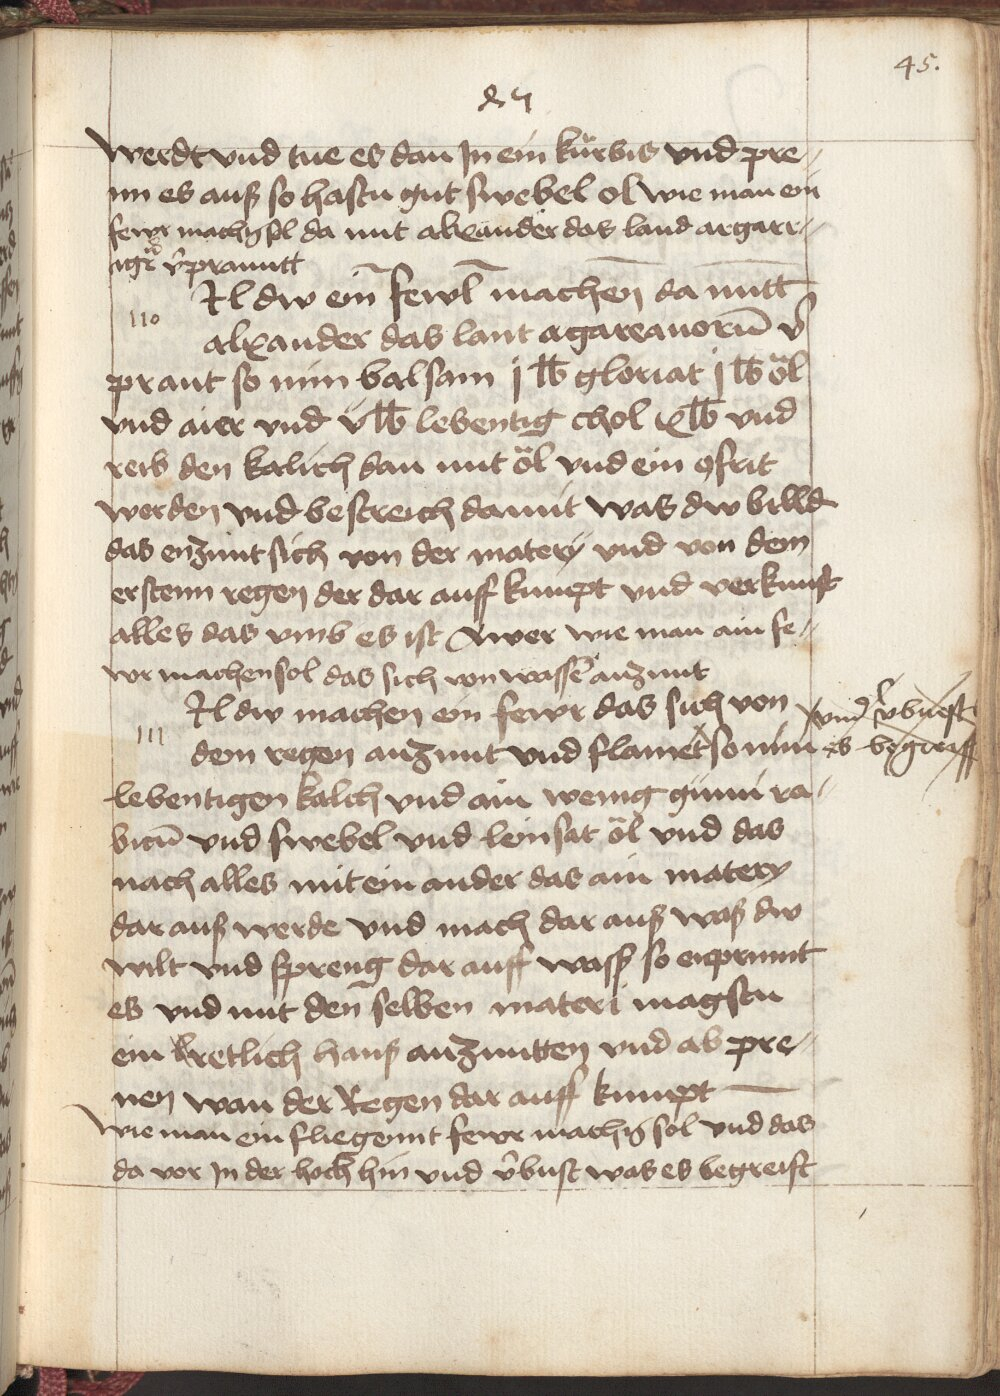 45.
werdt vnd tue es dan Jn ein kürbis vnd pre〃
nn es auß so hastu gut swebel ol wie man ein
fewr machn sol da mit alexander das land argarr〃
v̂prannt
Jtl dw ein fewr machen da mitt
110
alexander das lant agarranorū v̂
prant so nim balsam j lb gloriat j lb öl
vnd aier vnd v lb lebentig chol x lb vnd
reib den kalich dan mit öl vnd ein
werden vnd bestreich damit was dw willd
das enzunt sich von der matery vnd von dem
erstenn regen der dar auff kumpt vnd verkunst
alles das vmb es ist Awer wie man ain fe〃
wr machen sol das sich von wasser anzunt
Jtl dw machen ein fewr das sich von
111
dem regen anzunt vnd flamet so nim
vnd vbüest
es begreiff
lebentigen kalch vnd ain wenig gumi ra〃
bicū vnd swebel vnd leinsat öl vnd das
mach alles mit ein ander das ain matery
dar auß werde vnd mach dar auß waß dw
wilt vnd spreng dar auff wasser so enprinnt
es vnd mit den selben materi magstu
ein retlich hauß anzuntten vnd ab pre〃
nen wan der Regen dar auff kumpt
wie man ein fliegennt fewr machn sol vnd das
da vor Jn der hoch hin vnd v̂bust was es begreift